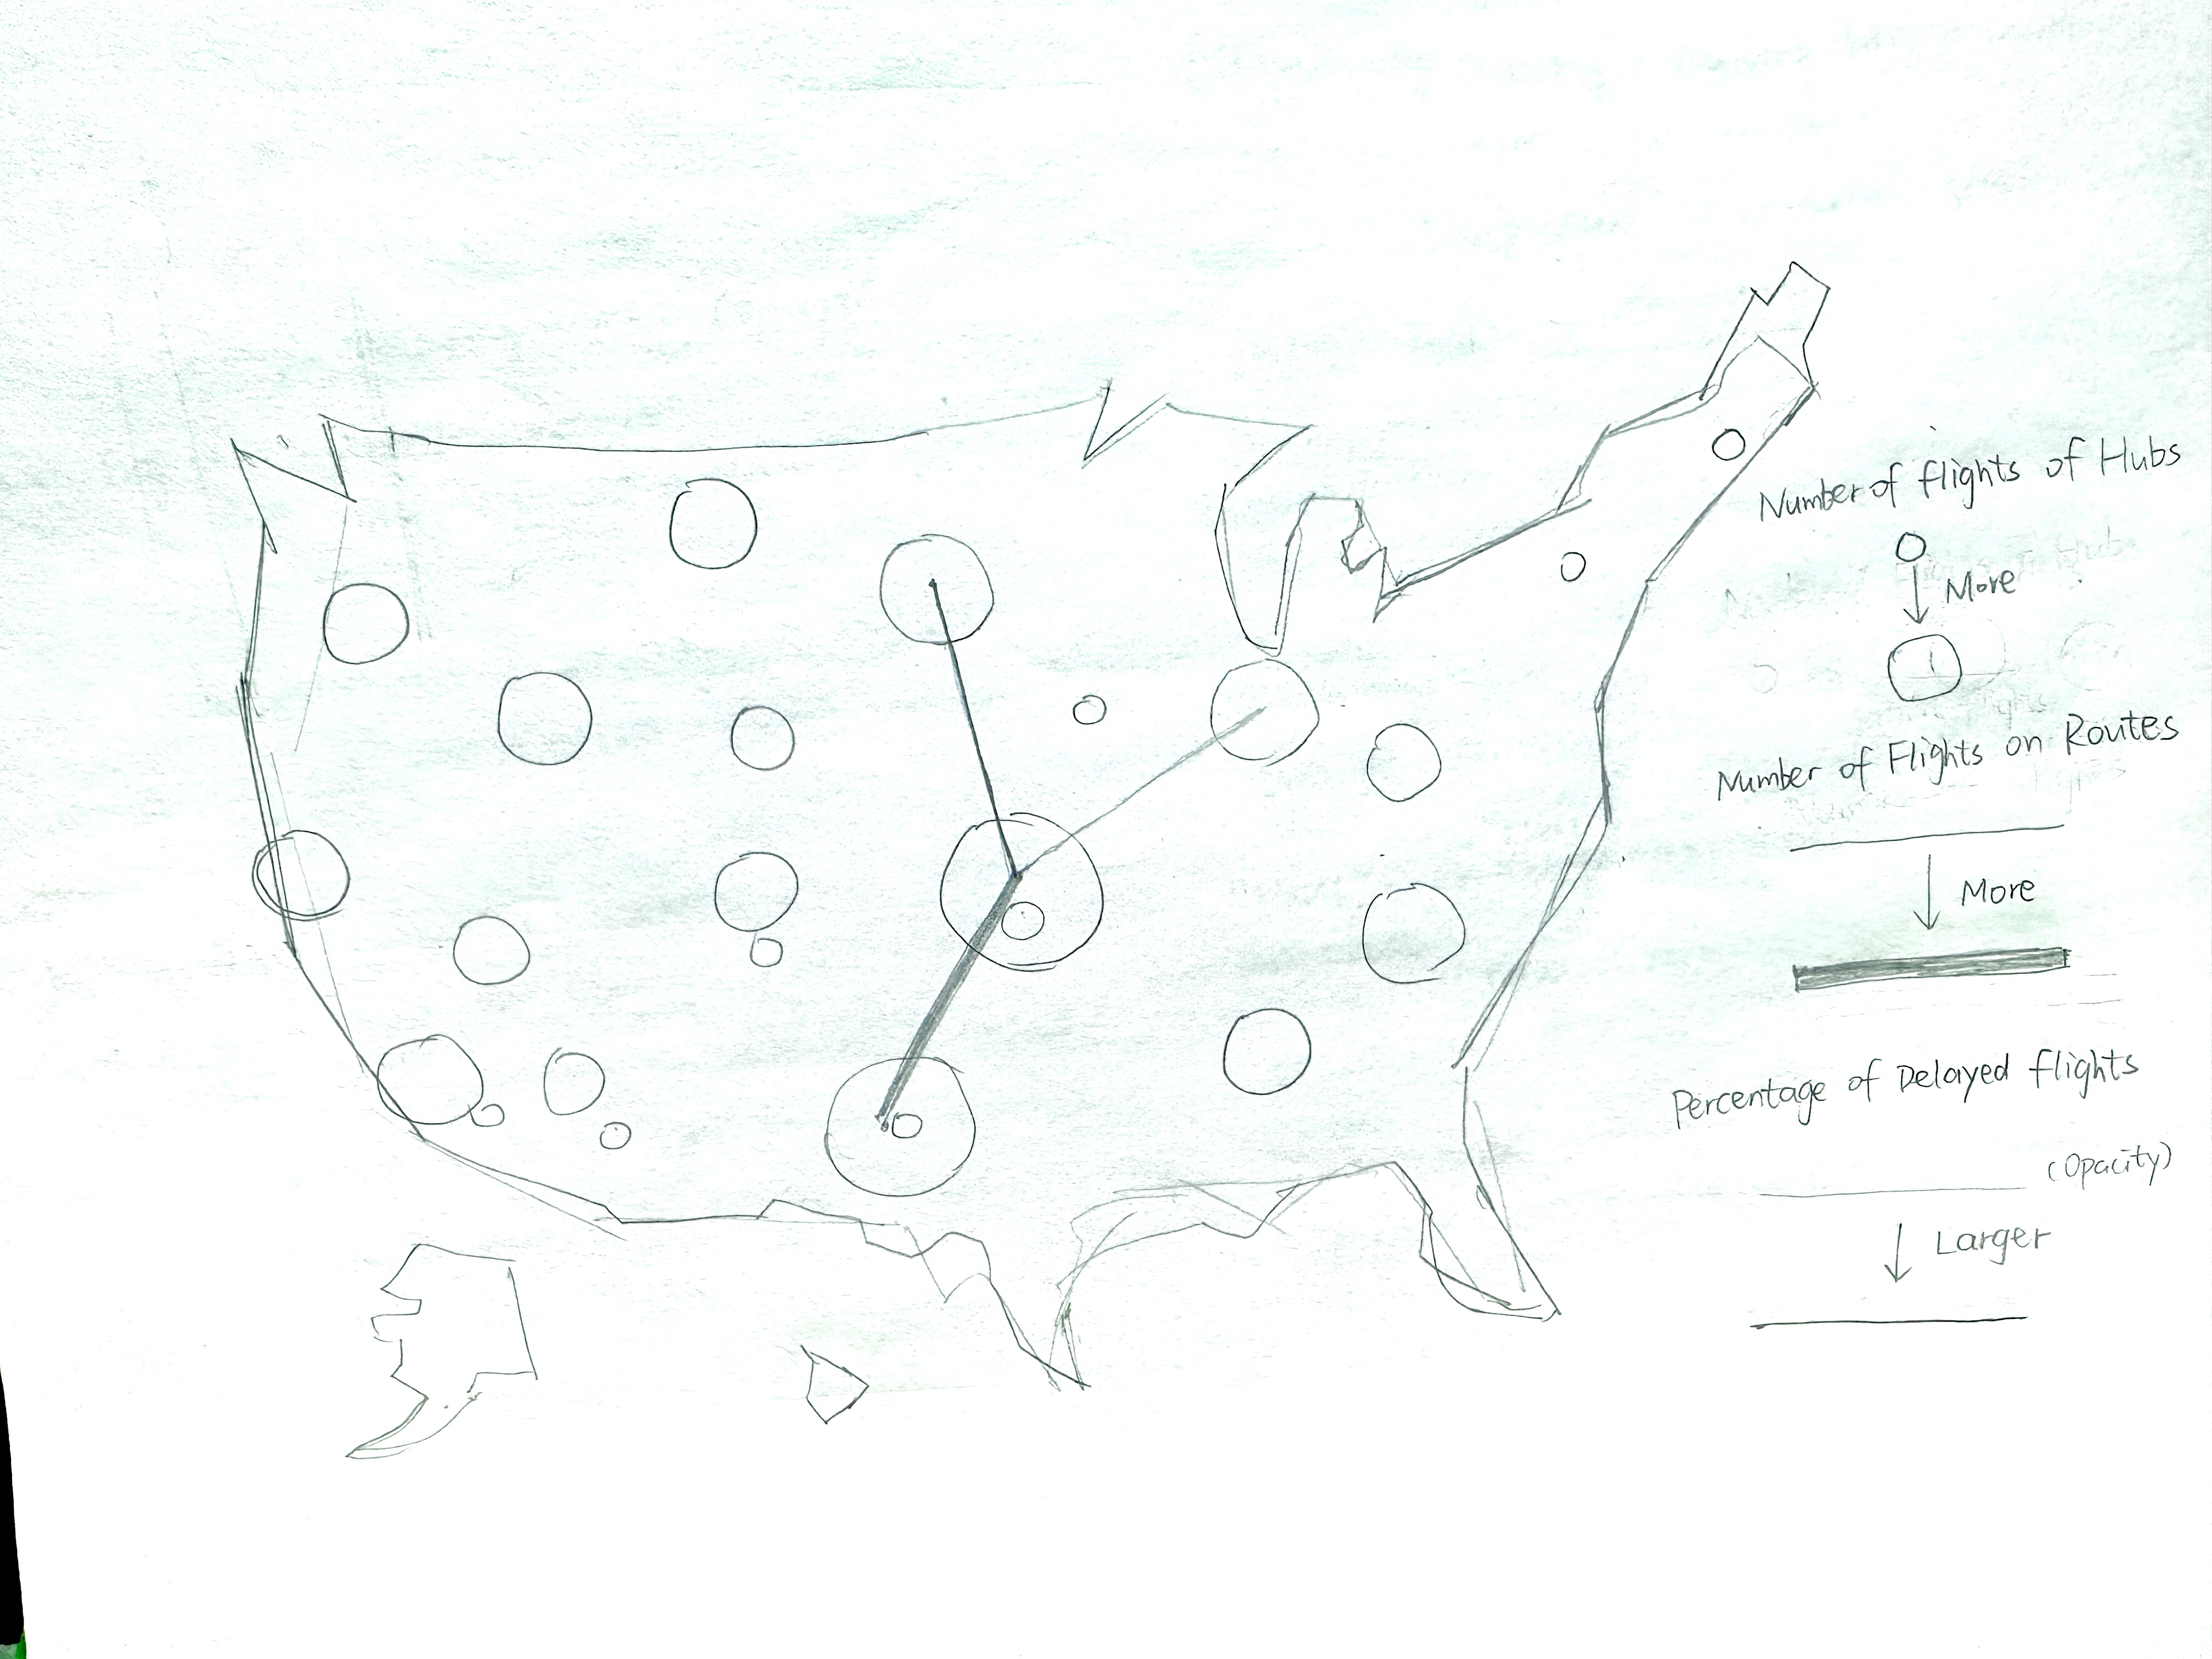 Number of flights of Hubs
More
Number of Flights on Routes
More
Percentage of Delayed flights
(Opacity)
Larger